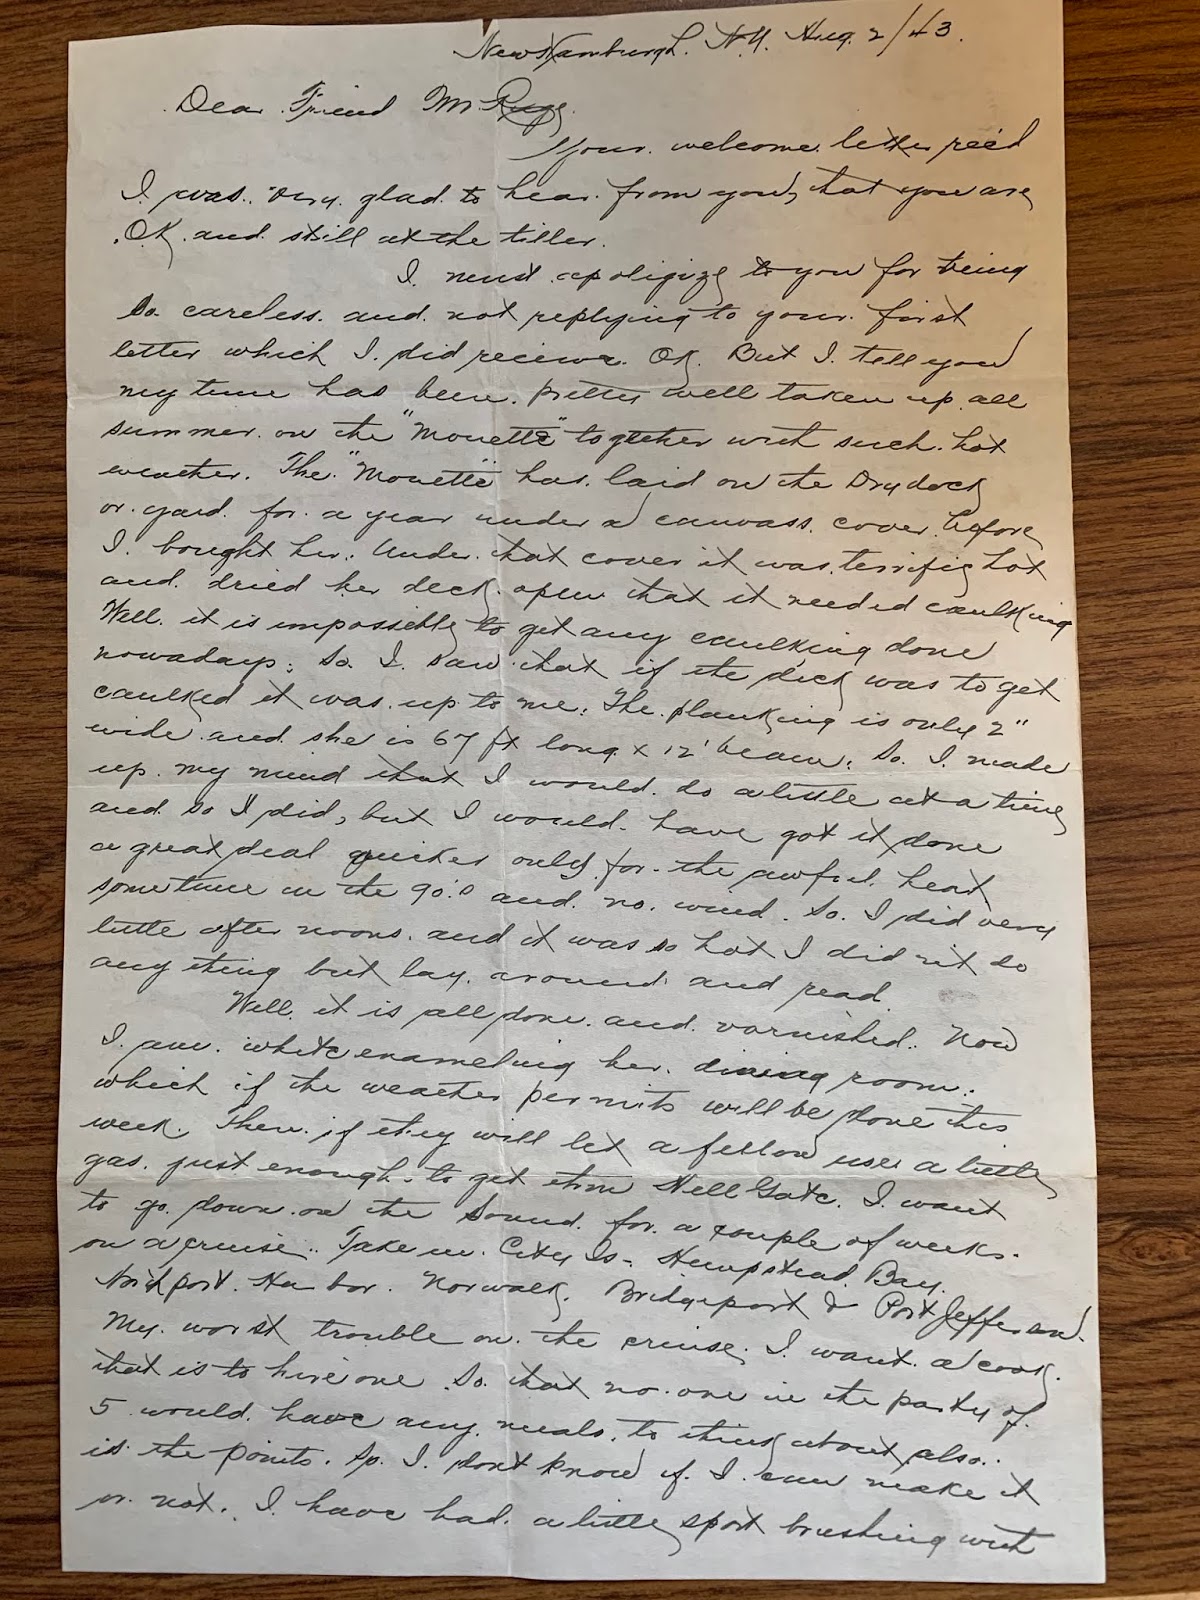 New Hamburgh. N.Y. Aug. 2/43.
Dear Friend Mr Rugg.
Your welcome letter rec'd
I was very glad to hear from you, that you are
OK. and still at the tiller.
I must apoligize to you for being
so careless and not replying to your first
letter which I did receive OK. But I tell you
my time has been pretty well taken up all
summer on the "Mouette" together with such hot
weather. The "Mouette" has laid on the Drydock
or yard for a year under a canvass cover before
I bought her. Under that cover it was terrific hot
and dried her deck open that it needed caulking
Well it is impossible to get any caulking done
nowadays. So I saw that if the deck was to get
caulked it was up to me. The planking is only 2"
wide and she is 67 ft long x 12' beam. So I made
up my mind that I would do a little at a time
and so I did, but I would have got it done
a great deal quicker only for the awful heat
sometime in the 90's and no wind. So I did very
little after noons and it was so hot I did nt do
any thing but lay around and read
Well it is all done and varnished. Now
I am white enameling her dining room.
which if the weather permits will be done this
week. Then if they will let a fellow use a little
gas just enough to get thro Hell Gate. I want
to go down on the Sound for a couple of weeks.
on a cruise. Take in City Is. Hempstead Bay.
Northport Harbor. Norwalk, Bridgeport & Port Jefferson.
My worst trouble on the cruise, I want a cook,
that is to hire one. So that no one in the party of
5 would have any meals to think about also.
is the points. So I dont know if I can make it
or not. I have had a little sport brushing with